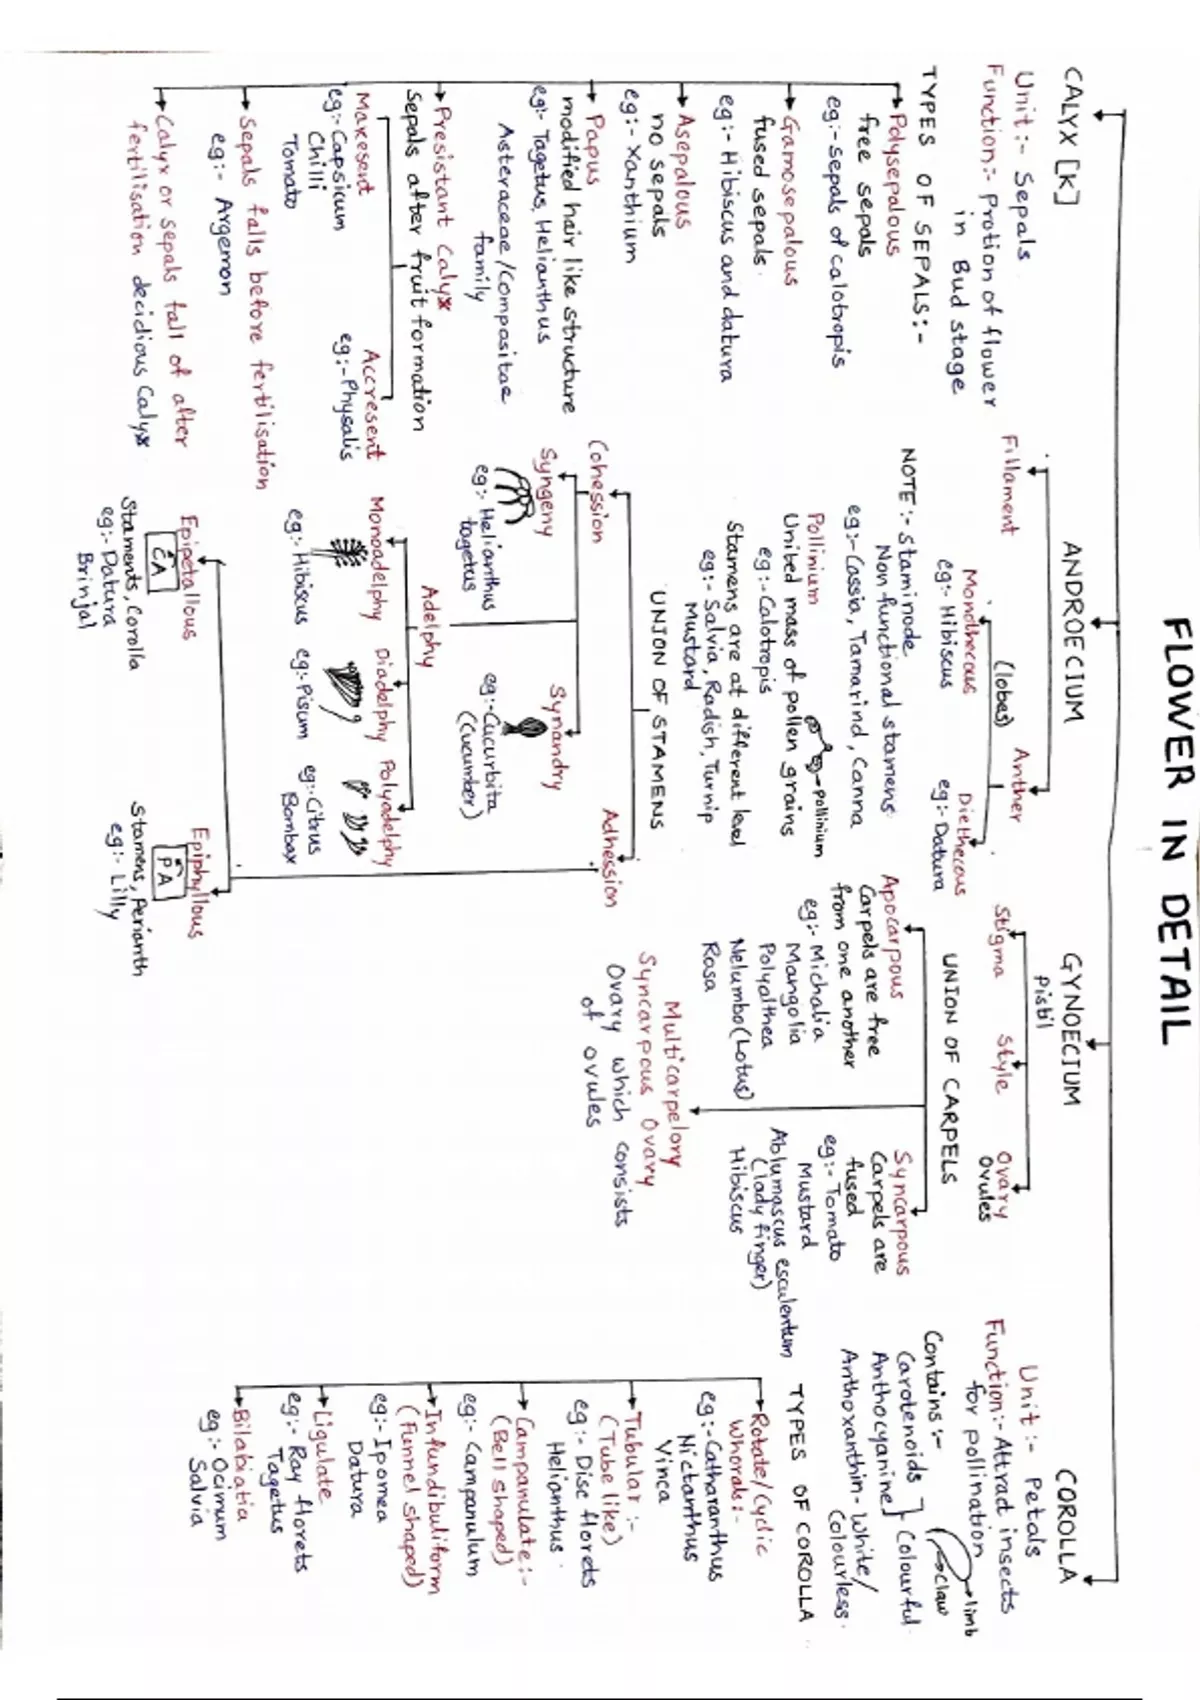 FLOWER IN DETAIL
CALYX [K]
Unit:- Sepals
Function:- Protion of flower
in Bud stage
TYPES OF SEPALS:-
Polysepalous
free sepals
eg:- sepals of calotropis
Gamosepalous
fused sepals.
eg:- Hibiscus and datura
Asepalous
no sepals
eg:- Xanthium
Papus
modified hair like structure
eg:- Tagetus, Helianthus
Asteraceae/Compositae
family
Presistant Calyx
Sepals after fruit formation
Maresent
eg:- Capsicum
Chilli
Tomato
Accresent
eg:- Physalis
Sepals falls before fertilisation
eg:- Argemon
Calyx or sepals fall of after
fertilisation decidious Calyx
ANDROECIUM
Fillament
Anther
(lobes)
Monothecous
eg:- Hibiscus
Diethecous
eg:- Datura
NOTE:- Staminode
Non functional stamens
eg:- Cassia, Tamarind, Canna
Pollinium
United mass of pollen grains
eg:- Calotropis
pollinium
Stamens are at different level
eg:- Salvia, Radish, Turnip
Mustard
UNION OF STAMENS
Cohession
Syngeny
eg:- Helianthus
tagetus
Synandry
eg:- Cucurbita
(Cucumber)
Adelphy
Monoadelphy
eg:- Hibiscus
Diadelphy
eg:- Pisum
Polyadelphy
eg:- Citrus
Bombax
Adhession
Epipetallous
CA
Staments, Corolla
eg:- Datura
Brinjal
Epiphyllous
PA
Stamens, Perianth
eg:- Lilly
GYNOECIUM
Pistil
Stigma
Style
Ovary
Ovules
UNION OF CARPELS
Apocarpous
Carpels are free
from one another
eg:- Michalia
Mangolia
Polyalthea
Nelumbo (Lotus)
Rosa
Syncarpous
Carpels are
fused
eg:- Tomato
Mustard
Ablumascus esculentum
(lady finger)
Hibiscus
Multicarpelory
Syncarpous Ovary
Ovary which consists
of ovules
COROLLA
Unit:- Petals
Function:- Attrad insects
for pollination
limb
claw
Contains:-
Carotenoids
Anthocyanine] Colourful
Anthoxanthin - White/
Colourless.
TYPES OF COROLLA
Rotate/Cyclic
Whorals:-
eg:- Catharanthus
Nictanthus
Vinca
Tubular:-
(Tube like)
eg:- Disc florets
Helianthus.
Campanulate:-
(Bell shaped)
eg:- Campanulum
Infundibuliform
(Funnel shaped)
eg:- Ipomea
Datura
Ligulate
eg:- Ray florets
Tagetus
Bilabiatia
eg:- Ocimum
Salvia